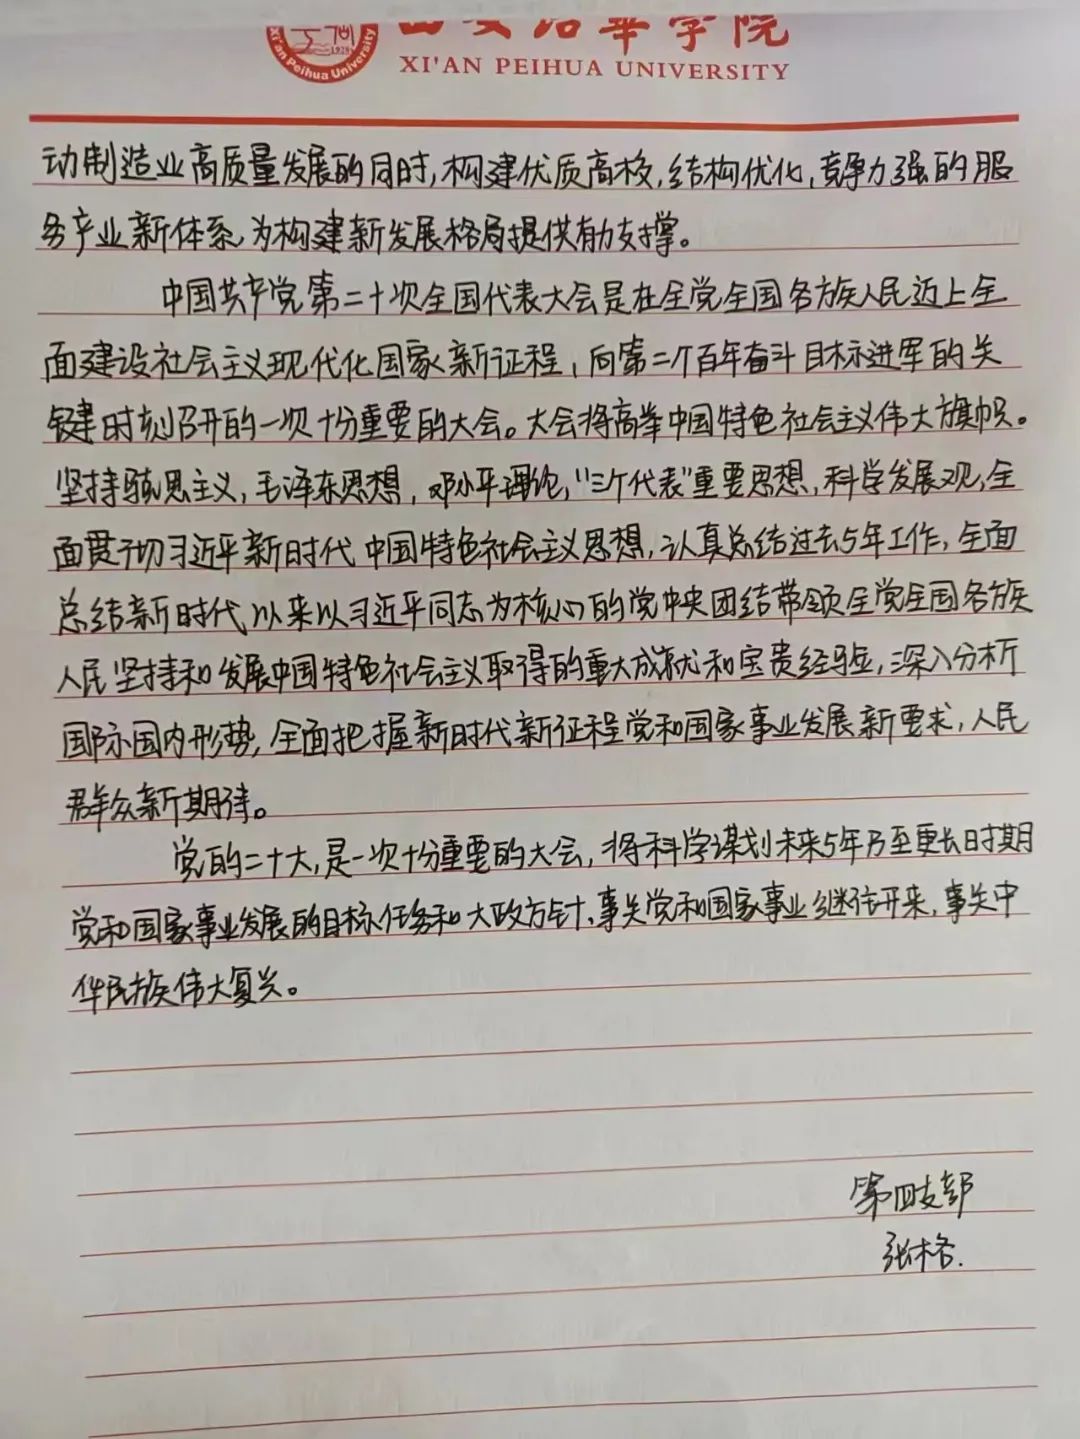 西安培華学院
XI'AN PEIHUA UNIVERSITY
Xi'an Peihua University
1928
动制造业高质量发展的同时,构建优质高校,结构优化,竞争力强的服
务产业新体系,为构建新发展格局提供有力支撑。
中国共产党第二十次全国代表大会是在全党全国各族人民迈上全
面建设社会主义现代化国家新征程,向第二个百年奋斗目标进军的关
键时刻召开的一次十分重要的大会。大会将高举中国特色社会主义伟大旗帜。
坚持马克思主义,毛泽东思想,邓小平理论,"三个代表"重要思想,科学发展观,全
面贯彻习近平新时代中国特色社会主义思想,认真总结过去5年工作,全面
总结新时代以来以习近平同志为核心的党中央团结带领全党全国各族
人民坚持和发展中国特色社会主义取得的重大成就和宝贵经验,深入分析
国际国内形势,全面把握新时代新征程党和国家事业发展新要求,人民
群众新期待。
党的二十大,是一次十分重要的大会,将科学谋划未来5年乃至更长时期
党和国家事业发展的目标任务和大政方针,事关党和国家事业继往开来,事关中
华民族伟大复兴。
第四支部
张格.